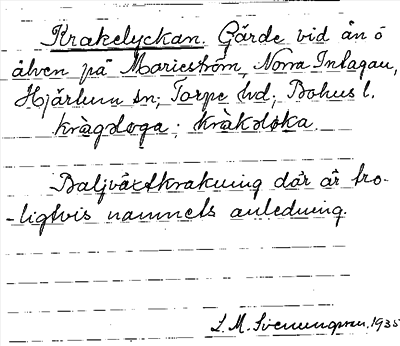 Krakelyckan. Gärde vid ån ö
älven på Marieström, Norra Intagan,
Hjärtum sn; Torpe hd; Bohusl.
kràgdoga; kràkdoka.
Baljväxtkrakning där är tro-
-ligtvis namnets anledning.
L. M. Svenungsson, 1935